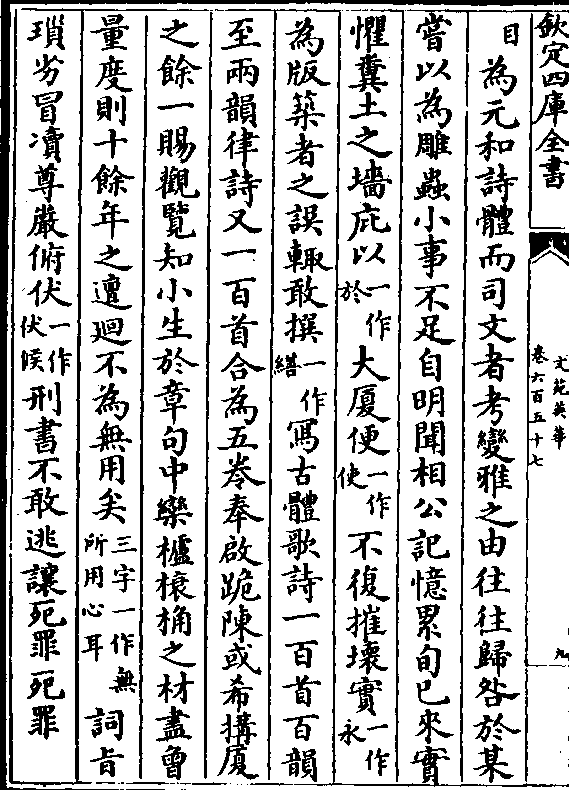 欽定四庫全書
文苑英華
卷六百五十七
九
目為元和詩體而司文者考變雅之由往往歸咎於某
嘗以為雕蟲小事不足自明聞相公記憶累旬已來實
懼糞土之墻庇以一作於大厦便一作使不復摧壞實一作永
為版築者之誤輙敢撰一作繕寫古體歌詩一百首百韻
至兩韻律詩又一百首合為五卷奉啟跪陳或希搆厦
之餘一賜觀覽知小生於章句中欒櫨榱桷之材盡曾
量度則十餘年之邅廻不為無用矣三字一作無所用心耳詞旨
瑣劣冒凟尊嚴俯伏一作伏候刑書不敢逃讓死罪死罪